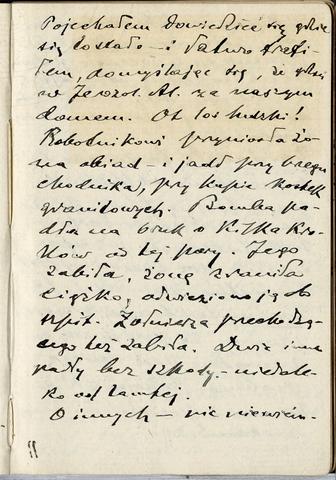 Pojechałem dowiedzieć się gdzie
się to stało – i łatwo trafi-
łem, domyślając się, że gdzieś
w Jerozol. Al. za naszym
domem. Ot los ludzki!
Robotnikowi przyniosła żo-
na obiad – i jadł przy brzegu
chodnika, przy kupie kostek
granitowych. Bomba pa-
dła na bruk o kilka kro-
ków od tej pary. Jego
zabiła, żonę zraniła
ciężko, odwieziono ją do
szpit. Żołnierza przechodzą-
cego też zabiła. Dwie inne
padły bez szkody – niedale-
ko od tamtej.
O innych – nic nie wiem.